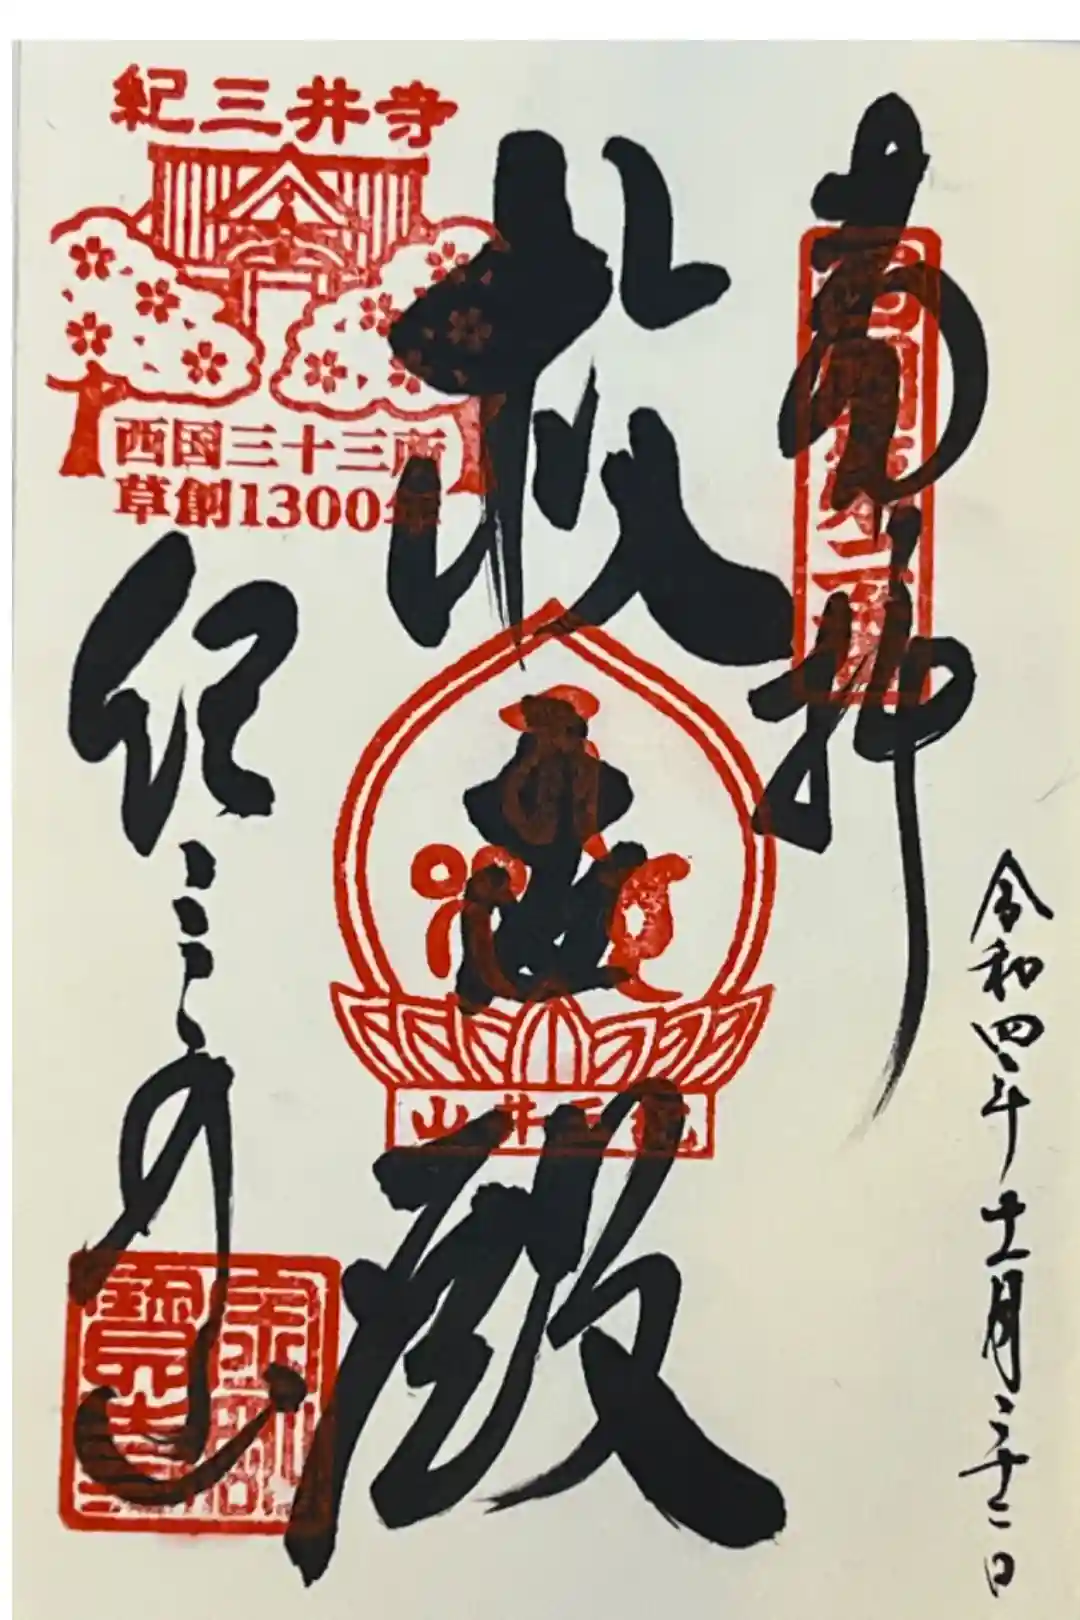 奉拝
令和四年十一月二十二日
救世殿
紀三井寺
紀三井寺
西国三十三所
草創1300年
紀三井山